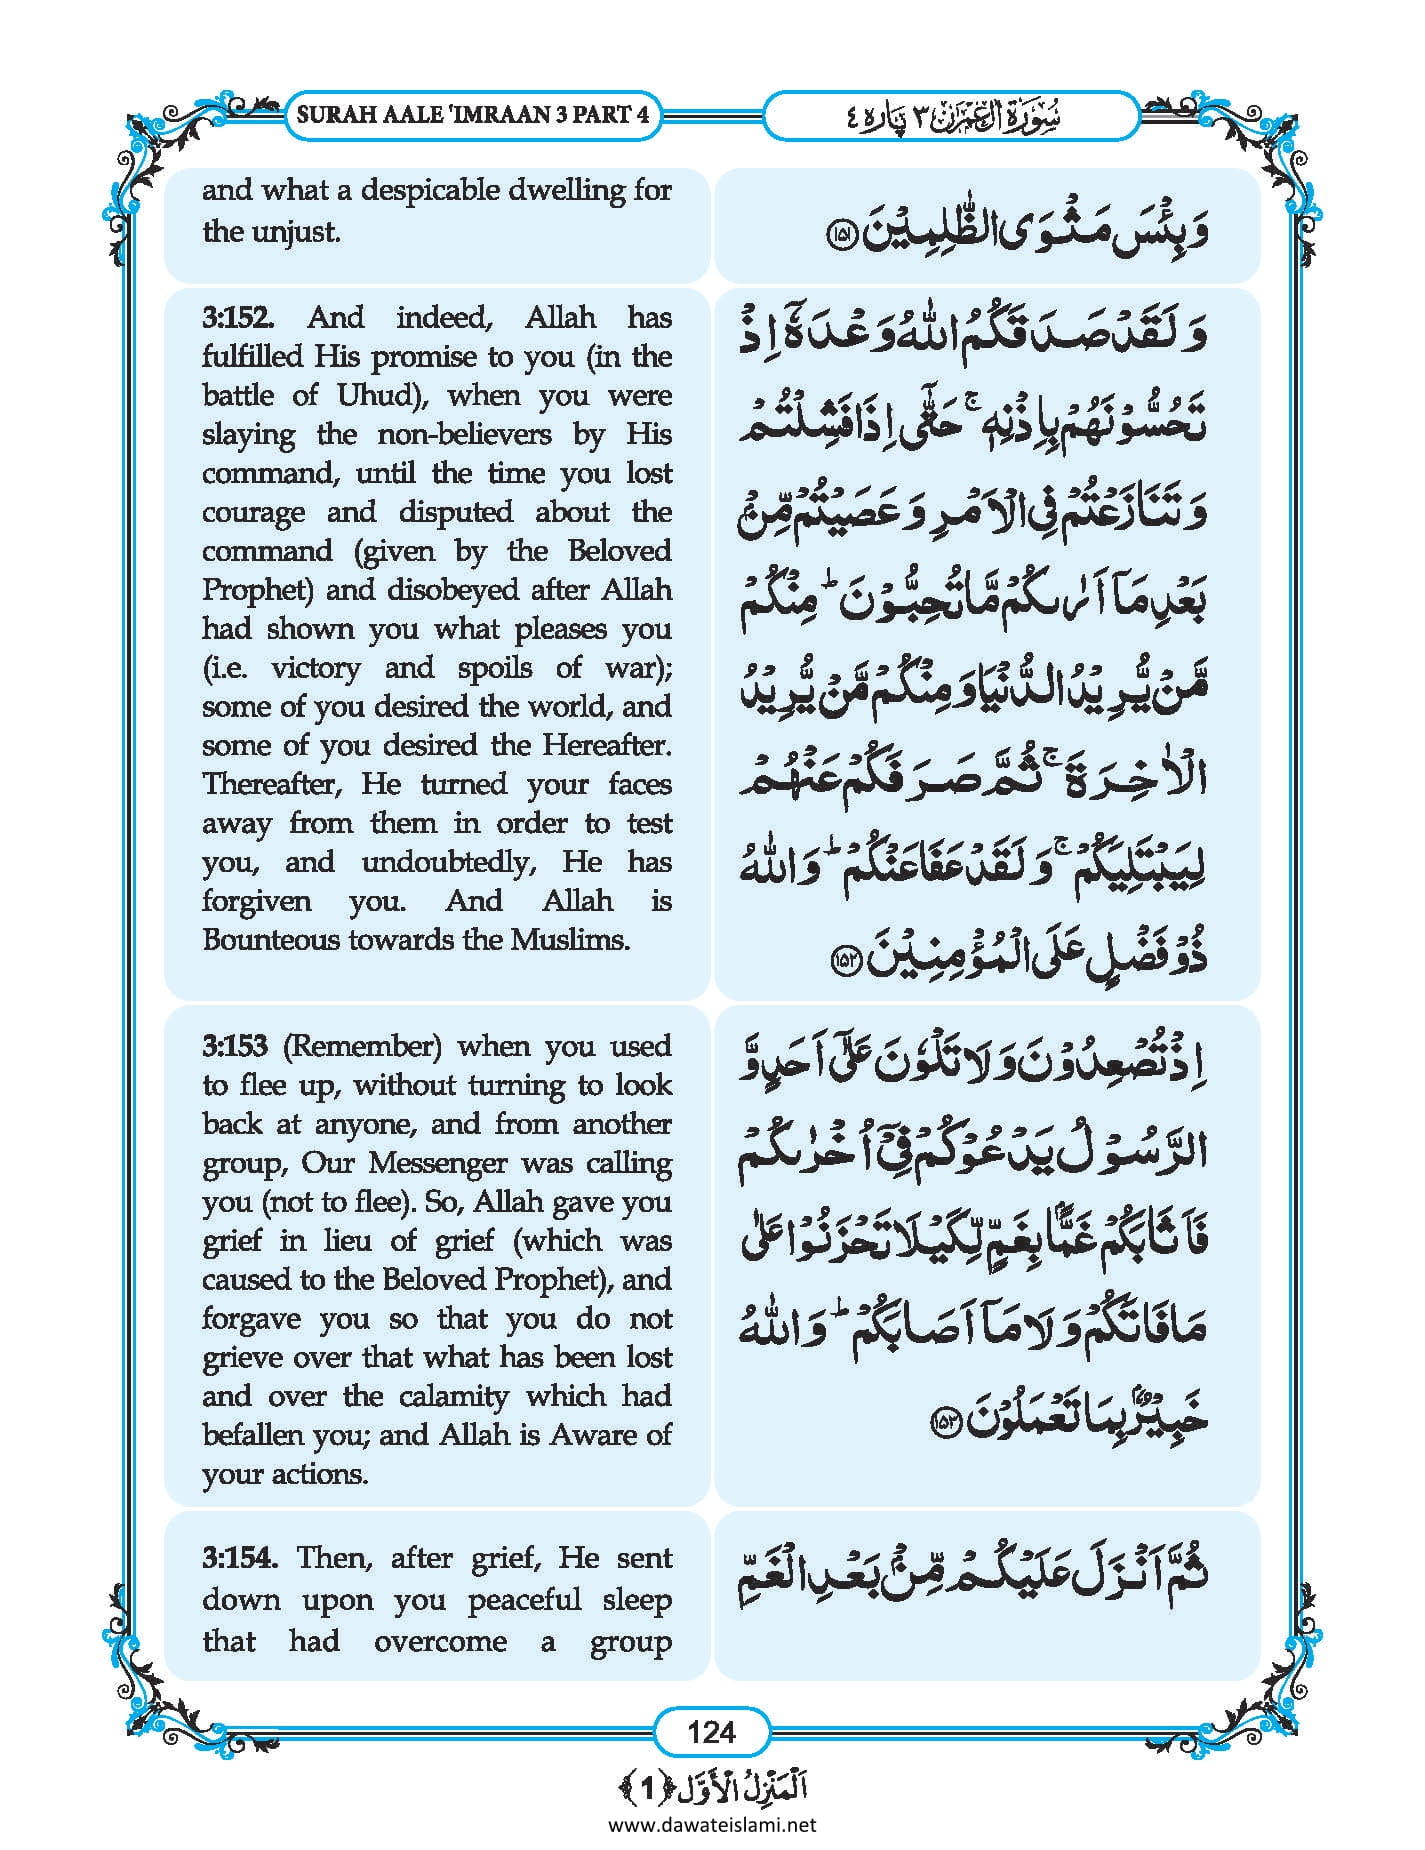 SURAH AALE 'IMRAAN 3 PART 4
سُوْرَةُ اٰلِ عِمْرٰن ٣ پَارَہ ٤
and what a despicable dwelling for
the unjust.
وَ بِئْسَ مَثْوَى الظّٰلِمِیْنَ ﴿۱۵۱﴾
3:152. And indeed, Allah has
fulfilled His promise to you (in the
battle of Uhud), when you were
slaying the non-believers by His
command, until the time you lost
courage and disputed about the
command (given by the Beloved
Prophet) and disobeyed after Allah
had shown you what pleases you
(i.e. victory and spoils of war);
some of you desired the world, and
some of you desired the Hereafter.
Thereafter, He turned your faces
away from them in order to test
you, and undoubtedly, He has
forgiven you. And Allah is
Bounteous towards the Muslims.
وَ لَقَدْ صَدَقَكُمُ اللّٰهُ وَعْدَهٗۤ اِذْ
تَحُسُّوْنَهُمْ بِاِذْنِهٖ ۚ حَتّٰۤى اِذَا فَشِلْتُمْ
وَ تَنَازَعْتُمْ فِی الْاَمْرِ وَ عَصَیْتُمْ مِّنْۢ
بَعْدِ مَاۤ اَرٰىكُمْ مَّا تُحِبُّوْنَ ؕ مِنْكُمْ
مَّنْ یُّرِیْدُ الدُّنْیَا وَ مِنْكُمْ مَّنْ یُّرِیْدُ
الْاٰخِرَةَ ۚ ثُمَّ صَرَفَكُمْ عَنْهُمْ
لِیَبْتَلِیَكُمْ ۚ وَ لَقَدْ عَفَا عَنْكُمْ ؕ وَ اللّٰهُ
ذُوْ فَضْلٍ عَلَى الْمُؤْمِنِیْنَ ﴿۱۵۲﴾
3:153 (Remember) when you used
to flee up, without turning to look
back at anyone, and from another
group, Our Messenger was calling
you (not to flee). So, Allah gave you
grief in lieu of grief (which was
caused to the Beloved Prophet), and
forgave you so that you do not
grieve over that what has been lost
and over the calamity which had
befallen you; and Allah is Aware of
your actions.
اِذْ تُصْعِدُوْنَ وَ لَا تَلْوٗنَ عَلٰۤى اَحَدٍ وَّ
الرَّسُوْلُ یَدْعُوْكُمْ فِیْۤ اُخْرٰىكُمْ
فَاَثَابَكُمْ غَمًّۢا بِغَمٍّ لِّكَیْلَا تَحْزَنُوْا عَلٰى
مَا فَاتَكُمْ وَ لَا مَاۤ اَصَابَكُمْ ؕ وَ اللّٰهُ
خَبِیْرٌۢ بِمَا تَعْمَلُوْنَ ﴿۱۵۳﴾
3:154. Then, after grief, He sent
down upon you peaceful sleep
that had overcome a group
ثُمَّ اَنْزَلَ عَلَیْكُمْ مِّنْۢ بَعْدِ الْغَمِّ
124
اَلْمَنْزِلُ الْأَوَّل ﴿1﴾
www.dawateislami.net